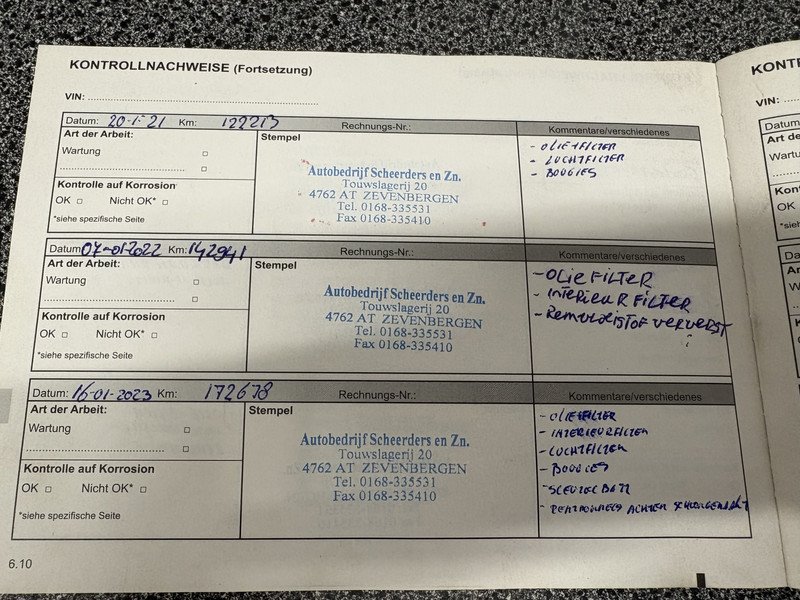 KONTROLLNACHWEISE (Fortsetzung)
VIN:
Datum: 20-1-21 Km: 122213 Rechnungs-Nr.: Kommentare/verschiedenes
Art der Arbeit:
Wartung
Kontrolle auf Korrosion
OK Nicht OK*
*siehe spezifische Seite
Stempel
Autobedrijf Scheerders en Zn.
Touwslagerij 20
4762 AT ZEVENBERGEN
Tel. 0168-335531
Fax 0168-335410
- OLIEFILTER
- LUCHTFILTER
- BOUGIES
Datum 07-01-2022 Km: 142941 Rechnungs-Nr.: Kommentare/verschiedenes
Art der Arbeit:
Wartung
Kontrolle auf Korrosion
OK Nicht OK*
*siehe spezifische Seite
Stempel
Autobedrijf Scheerders en Zn.
Touwslagerij 20
4762 AT ZEVENBERGEN
Tel. 0168-335531
Fax 0168-335410
- OLIE FILTER
- INTERIEUR FILTER
- Remvloeistof ververst
Datum: 16-01-2023 Km: 172678 Rechnungs-Nr.: Kommentare/verschiedenes
Art der Arbeit:
Wartung
Kontrolle auf Korrosion
OK Nicht OK*
*siehe spezifische Seite
Stempel
Autobedrijf Scheerders en Zn.
Touwslagerij 20
4762 AT ZEVENBERGEN
Tel. 0168-335531
Fax 0168-335410
- OLIEFILTER
- INTERIEURFILTER
- LUCHTFILTER
- BOUGIES
- ACHTER
6.10
KONTR
VIN:
Datum
Art de
Wartu
Kont
OK
*sieh
Datu
Art
Wa